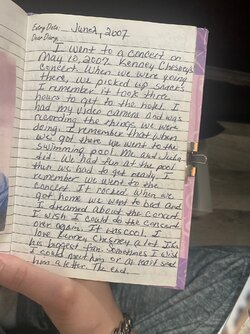 Entry Date: June 2, 2007
Dear Diary:
I went to a concert on
May 10, 2007. Kenney Chesney's
concert. When we were going
there, we picked up snacks.
I remember it took three
hours to get to the hotel. I
had my video camera and was
recording the things we were
doing. I remember that when
we got there we went to the
swimming pool. Me and
did. We had fun at the pool
then we had to get ready. I
remember we went to the
concert. It rocked. When we
got home we went to bed and
I dreamed about the concert.
I wish I could do the concert
over again. It was cool. I
love Kenney Chesney a lot. I'm
his biggest fan. Sometimes I wish
I could meet him or at least send
him a letter. The End.